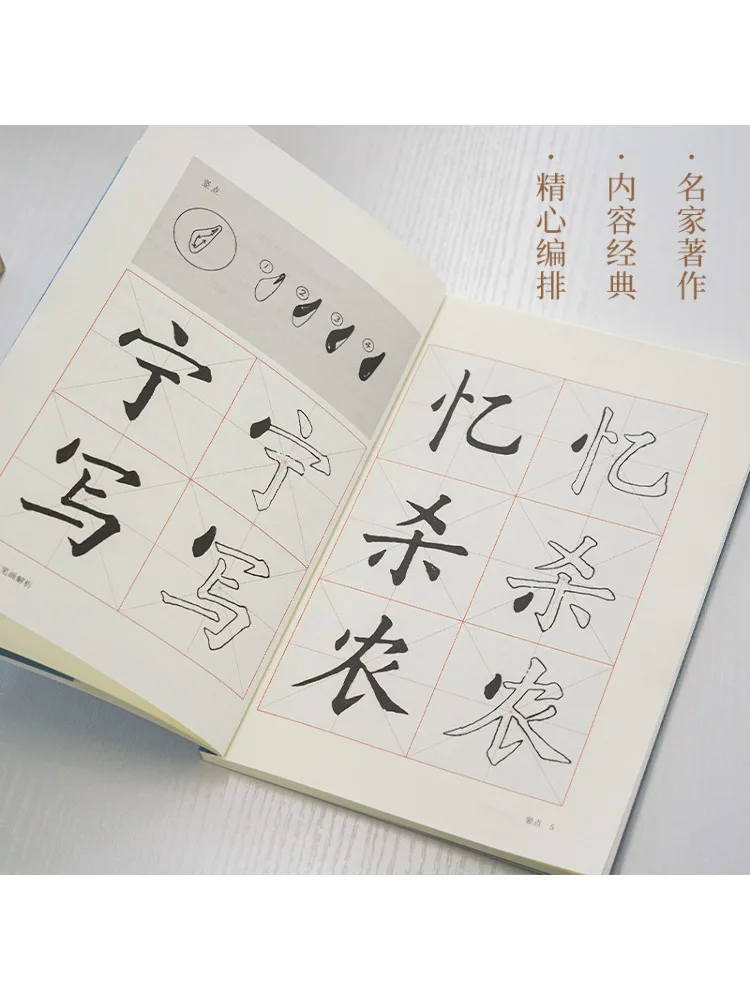 · 名家著作
· 内容经典
· 精心编排
竖点
① ② ③ ④
宁 宁
写 写
笔画解析
忆 忆
杀 杀
农 农
竖点 5